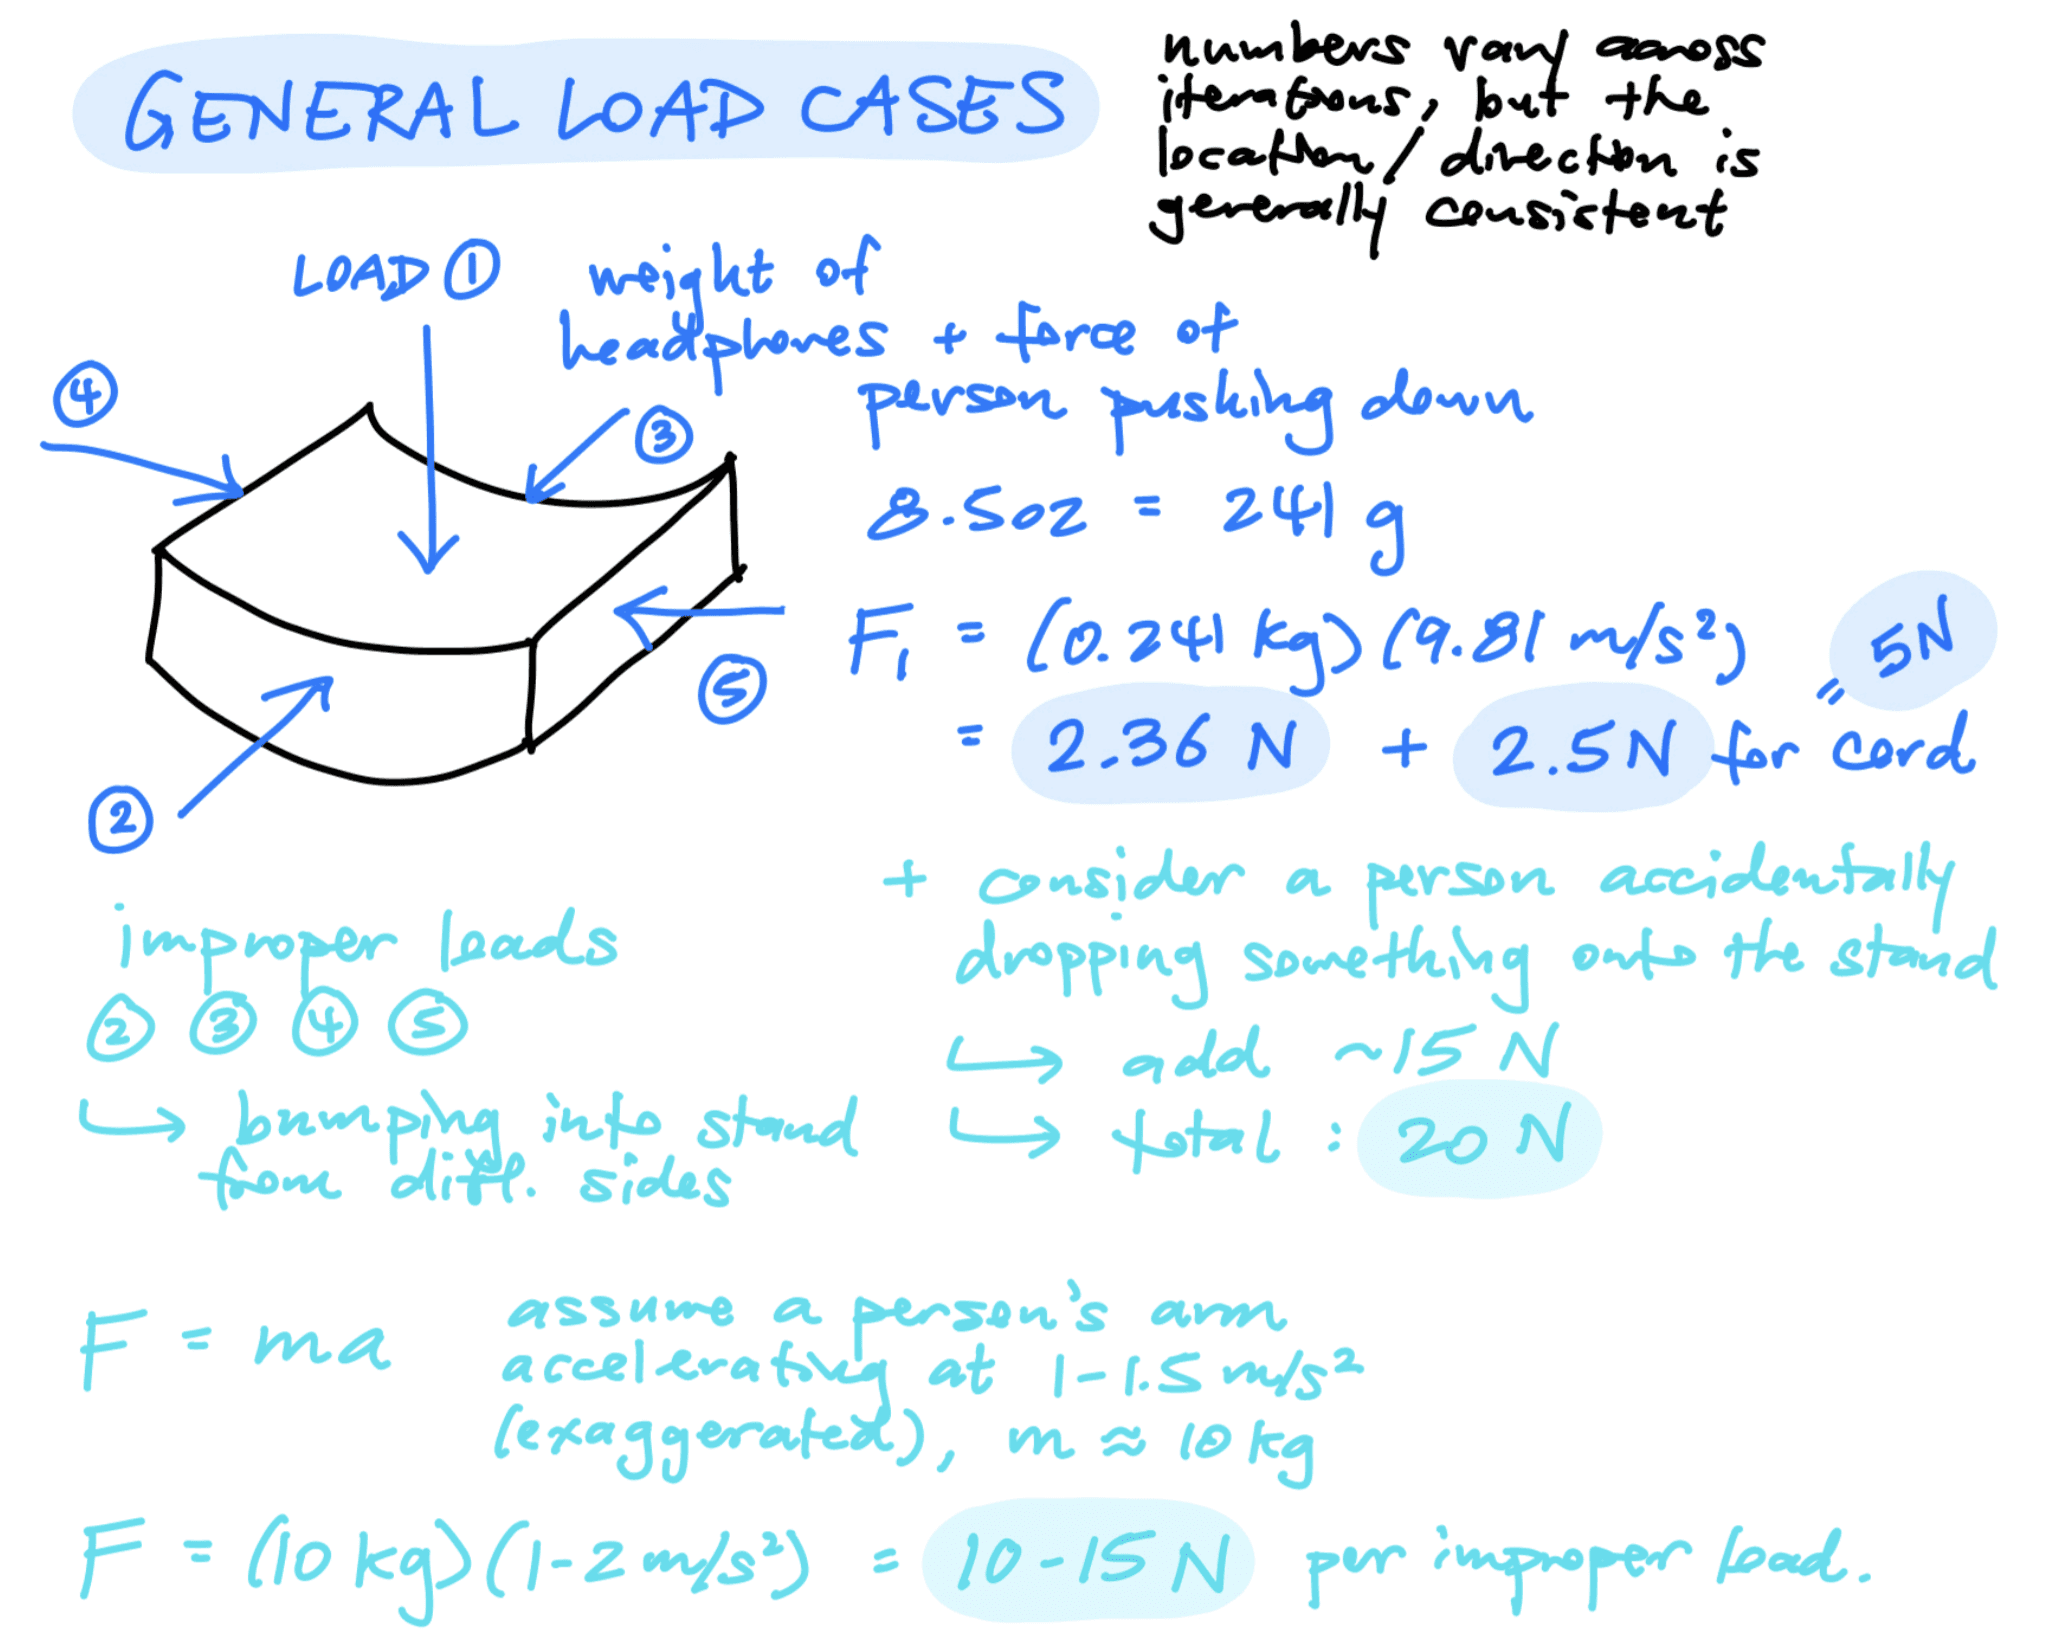 GENERAL LOAD CASES
numbers vary across
iterations, but the
location / direction is
generally consistent
LOAD ①
weight of
headphones + force of
person pushing down
④
③
⑤
②
8.5oz = 241 g
F₁ = (0.241 kg) (9.81 m/s²)
= 2.36 N + 2.5N for cord
= 5N
+ consider a person accidentally
dropping something onto the stand
↳ add ~15 N
↳ total : 20 N
improper loads
② ③ ④ ⑤
↳ bumping into stand
from diff. sides
F = ma
assume a person's arm
accelerating at 1-1.5 m/s²
(exaggerated), m ≈ 10 kg
F = (10 kg) (1-2 m/s²) = 10-15 N per improper load.